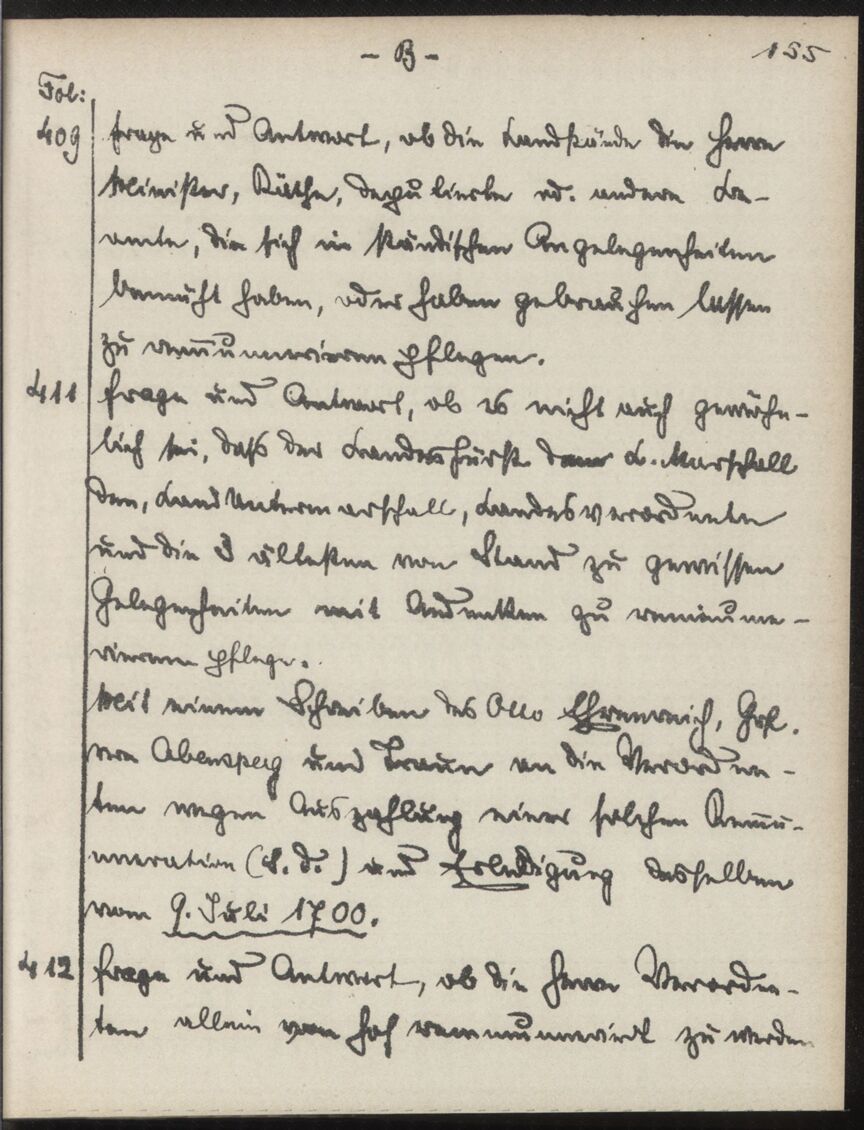 - B -
155
Fol:
409 Frage und Antwort, ob die Landstände die Herrn
Minister, Räthe, Deputierte od. andere Be-
amte, die sich in ständischen Angelegenheiten
bemüht haben, oder haben gebrauchen lassen
zu remunerieren pflegen.
411 Frage und Antwort, ob es nicht auch gewöhn-
lich sei, daß der Landesfürst dem L. Marschall
den, Land Untermarschall, Landesverordnete
und die 3 ältesten von Stand zu gewissen
Gelegenheiten mit zu remune-
rieren pflege.
Mit einem Schreiben des Otto Ehrenreich, Grf.
von Abensperg und Traun an die Verordne-
ten wegen Auszahlung einer solchen Remu-
neration (s. d.) und Erledigung desselben
vom 9. Juli 1700.
412 Frage und Antwort, ob die Herrn Verordne-
ten allein vom Hof remuneriert zu werden